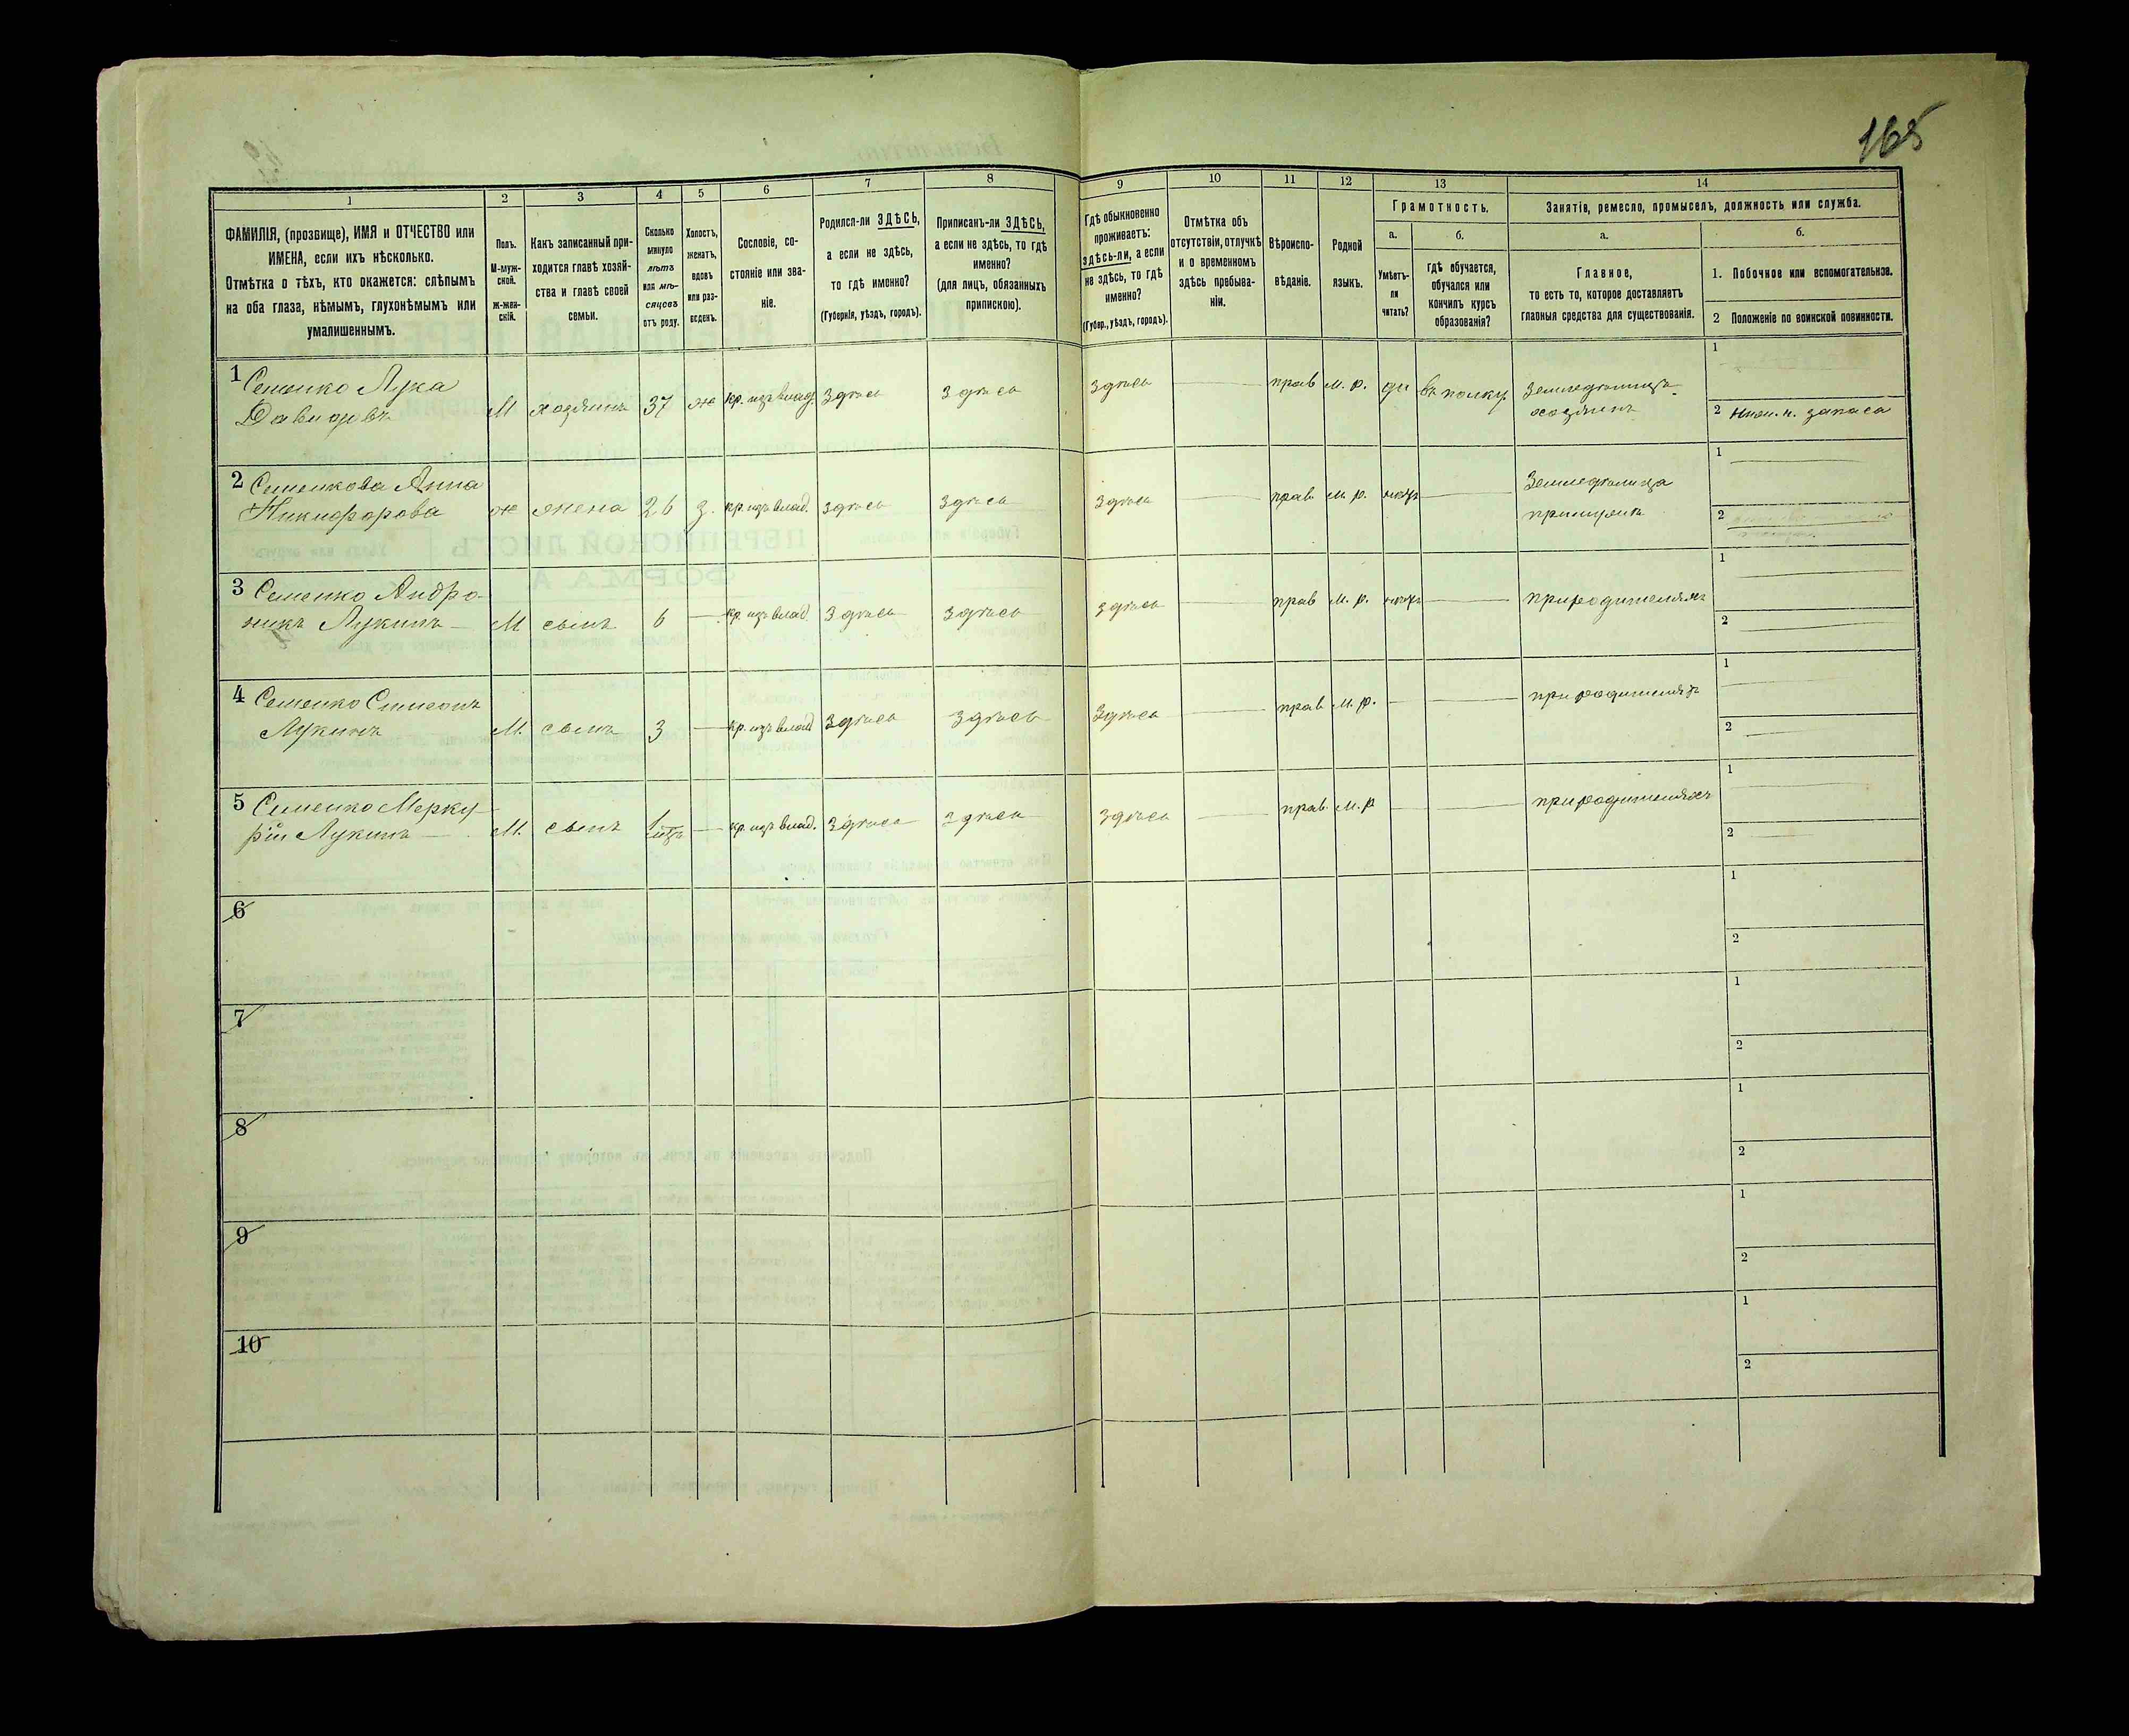 165
1
2
3
4
5
6
7
8
9
10
11
12
13
14
ФАМИЛІЯ, (прозвище), ИМЯ и ОТЧЕСТВО или
ИМЕНА, если ихъ нѣсколько.
Отмѣтка о тѣхъ, кто окажется: слѣпымъ
на оба глаза, нѣмымъ, глухонѣмымъ или
умалишеннымъ.
Полъ.
М-муж-
ской.
Ж-жен-
скій.
Какъ записанный при-
ходится главѣ хозяй-
ства и главѣ своей
семьи.
Сколько
минуло
лѣтъ
или мѣ-
сяцевъ
отъ роду.
Холостъ,
женатъ,
вдовъ
или раз-
веденъ.
Сословіе, со-
стояніе или зва-
ніе.
Родился-ли ЗДѢСЬ,
а если не здѣсь,
то гдѣ именно?
(Губернія, уѣздъ, городъ).
Приписанъ-ли ЗДѢСЬ,
а если не здѣсь, то гдѣ
именно?
(для лицъ, обязанныхъ
припискою).
Гдѣ обыкновенно
проживаетъ:
здѣсь-ли, а если
не здѣсь, то гдѣ
именно?
(Губер., уѣздъ, городъ).
Отмѣтка объ
отсутствіи, отлучкѣ
и о временномъ
здѣсь пребыва-
ніи.
Вѣроиспо-
вѣданіе.
Родной
языкъ.
Грамотность.
а.
Умѣетъ-
ли
читать?
б.
гдѣ обучается,
обучался или
кончилъ курсъ
образованія?
Занятія, ремесло, промыселъ, должность или служба.
а.
Главное,
то есть то, которое доставляетъ
главныя средства для существованія.
б.
1. Побочное или вспомогательное.
2 Положеніе по воинской повинности.
1 Семенко Лука
Давидовъ
М хозяинъ 37 ж кр. изъ влад. здѣсь здѣсь здѣсь прав м. р. да въ полку
Земледѣлица
хозяинъ
1
2 нижн. ч. запаса
2 Семенкова Анна
Никифорова
ж жена 26 з. кр. изъ влад. здѣсь здѣсь здѣсь прав м. р. нѣтъ
Земледѣлица
1
2
3 Семенко Андро-
никъ Лукинъ
М сынъ 6 кр. изъ влад. здѣсь здѣсь здѣсь прав м. р. нѣтъ при родителяхъ
1
2
4 Семенко Симеонъ
Лукинъ
М. сынъ 3 кр. изъ влад здѣсь здѣсь здѣсь прав м. р. при родителяхъ
1
2
5 Семенко Мерку-
рій Лукинъ
М. сынъ 1 мѣс. кр. изъ влад. здѣсь здѣсь здѣсь прав. м. р при родителяхъ
1
2
6
1
2
7
1
2
8
1
2
9
1
2
10
1
2